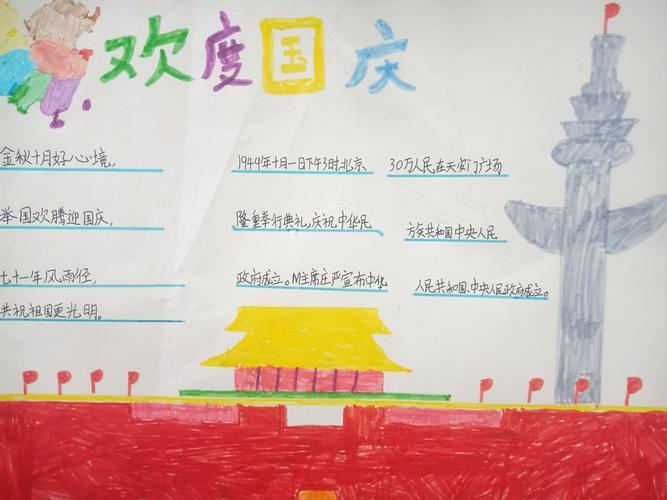 欢度国庆
金秋十月好心境，
举国欢腾迎国庆，
七十一年风雨径，
共祝祖国更光明。
1949年十月一日下午3时，北京 30万人民在天安门广场
隆重举行典礼，庆祝中华民 方矣共和国中央人民
政府成立。M主席庄严宣布中华 人民共和国、中央人民政府成立。